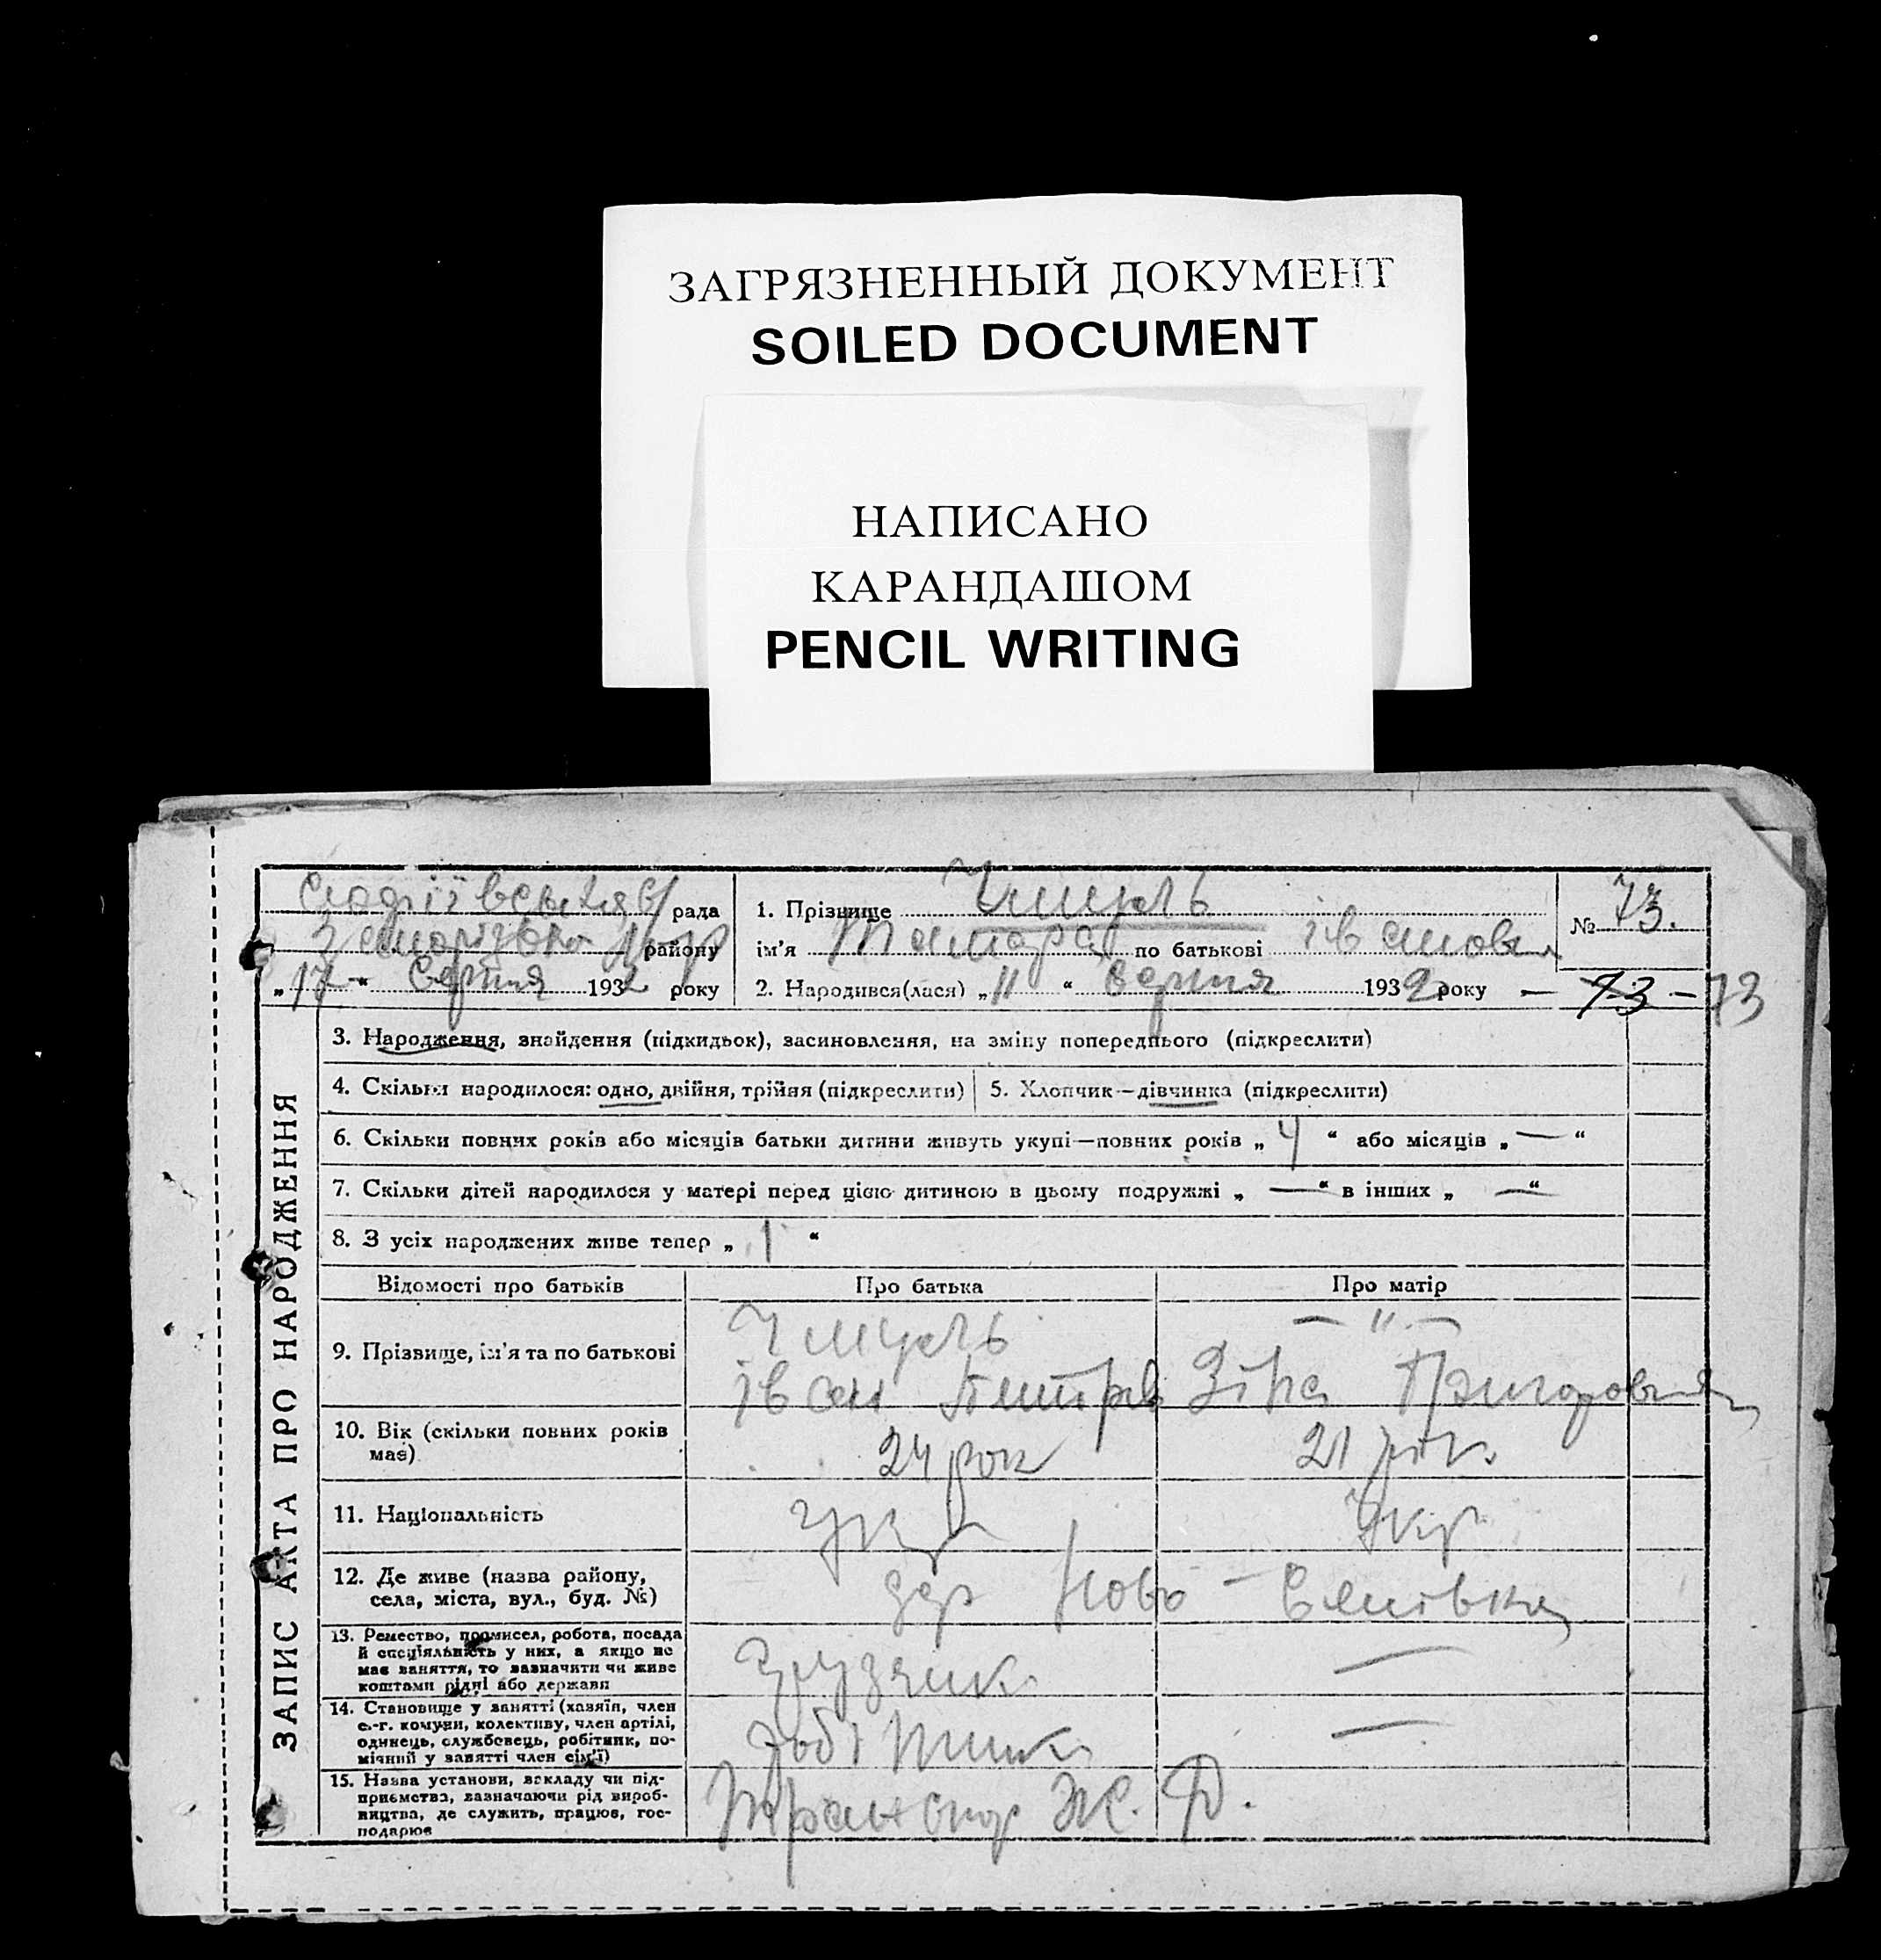 ЗАГРЯЗНЕННЫЙ ДОКУМЕНТ
SOILED DOCUMENT
НАПИСАНО
КАРАНДАШОМ
PENCIL WRITING
рада
району
„17“ Серпня 1932 року
1. Прізвище Чмираль
ім'я Тамара по батькові Івановна
2. Народився(лася) „11“ Серпня 1932 року
№ 73.
— 73 — 73
ЗАПИС АКТА ПРО НАРОДЖЕННЯ
3. Народження, знайдення (підкидьок), засиновлення, на зміну попереднього (підкреслити)
4. Скільки народилося: одно, двійня, трійня (підкреслити)
5. Хлопчик—дівчинка (підкреслити)
6. Скільки повних років або місяців батьки дитини живуть укупі—повних років „ 4 “ або місяців „ — “
7. Скільки дітей народилося у матері перед цією дитиною в цьому подружжі „ — “ в інших „ — “
8. З усіх народжених живе тепер „ 1 “
Відомості про батьків
Про батька
Про матір
9. Прізвище, ім'я та по батькові
— " —
Іван
Григоровна
10. Вік (скільки повних років має)
24 рок
21 рік
11. Національність
Укр
Укр
12. Де живе (назва району,
села, міста, вул., буд. №)
дер Ново -
13. Ремество, промисел, робота, посада
й спеціяльність у них, а якщо не
має заняття, то зазначити чи живе
коштами рідні або держави
Грузчик
—
14. Становище у занятті (хазяїн, член
с.-г. комуни, колективу, член артілі,
одинець, службовець, робітник, по-
мічний у занятті член сім'ї)
робітник
—
15. Назва установи, закладу чи під-
приємства, зазначаючи рід вироб-
ництва, де служить, працює, гос-
подарює
Транспор Ж. Д.